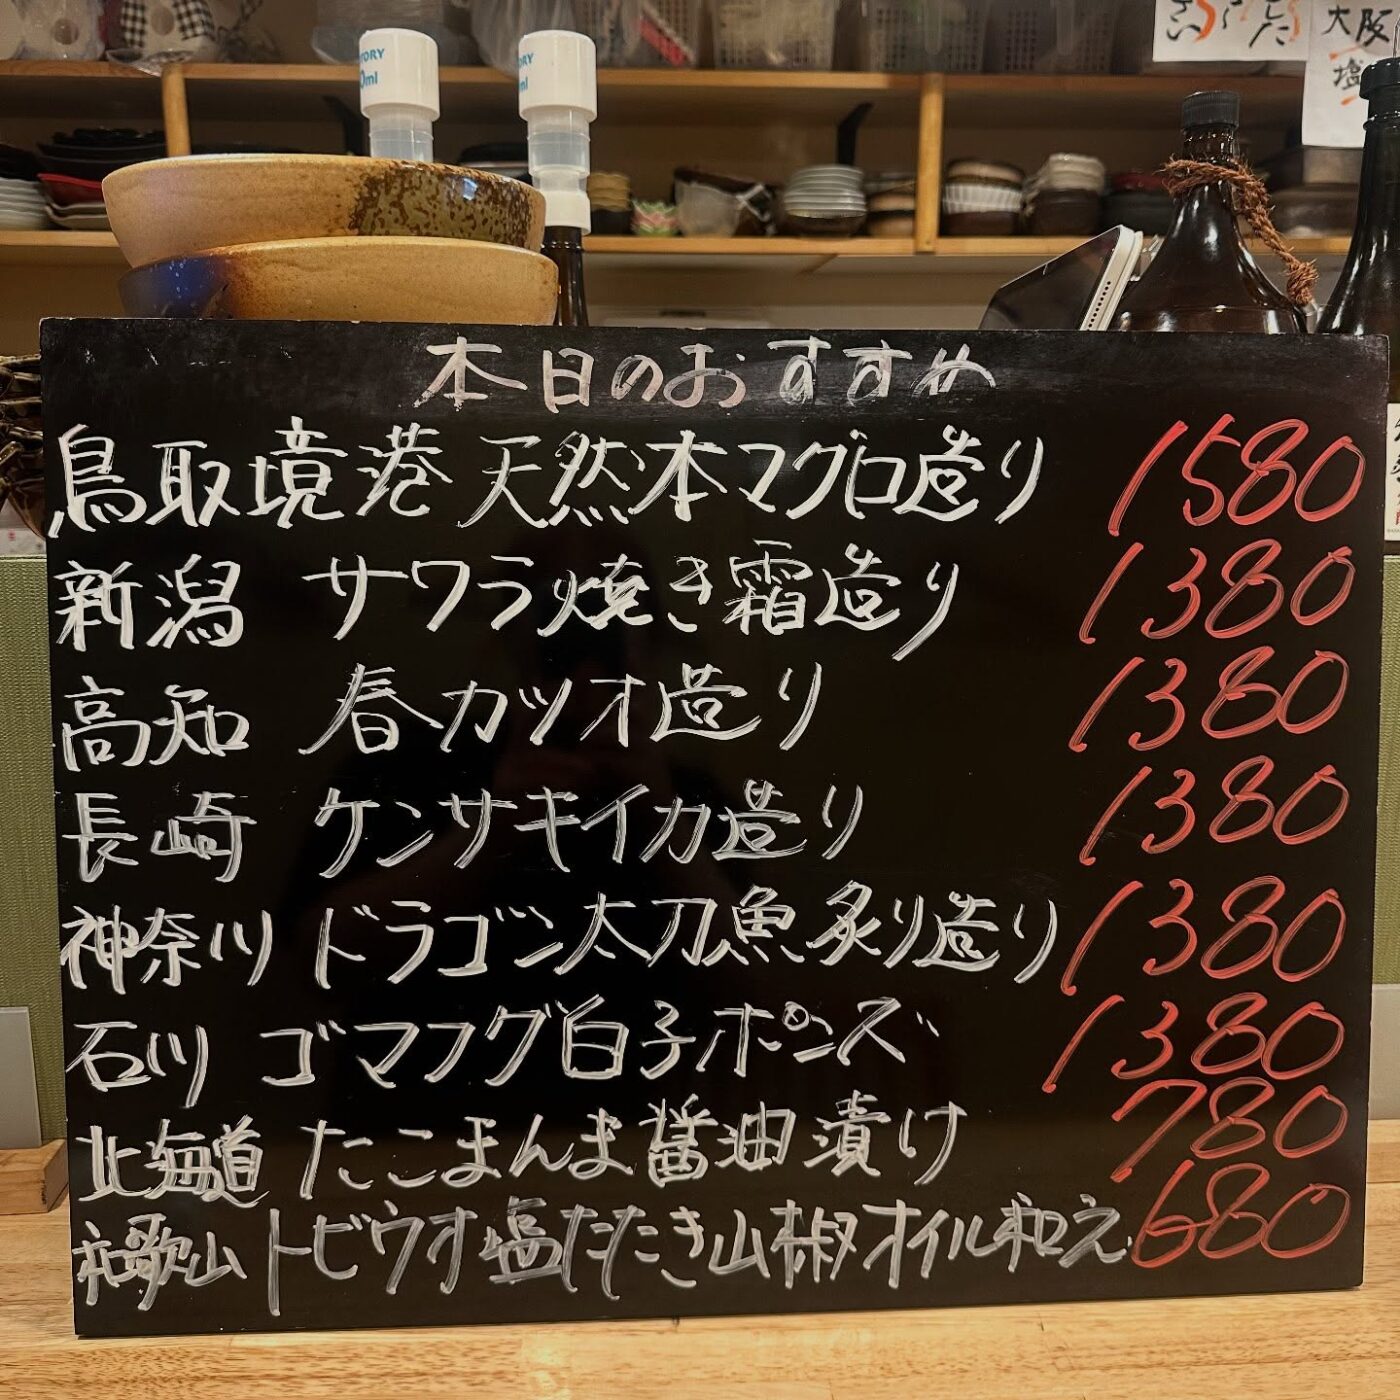 大阪
塩
本日のおすすめ
鳥取境港 天然本マグロ造り 1580
新潟 サワラ焼き霜造り 1380
高知 春カツオ造り 1380
長崎 ケンサキイカ造り 1380
神奈川 ドラゴン太刀魚炙り造り 1380
石川 ゴマフグ白子ポンズ 1380
北海道 たこまんま醤油漬け 780
和歌山 トビウオ塩たたき山椒オイル和え 680